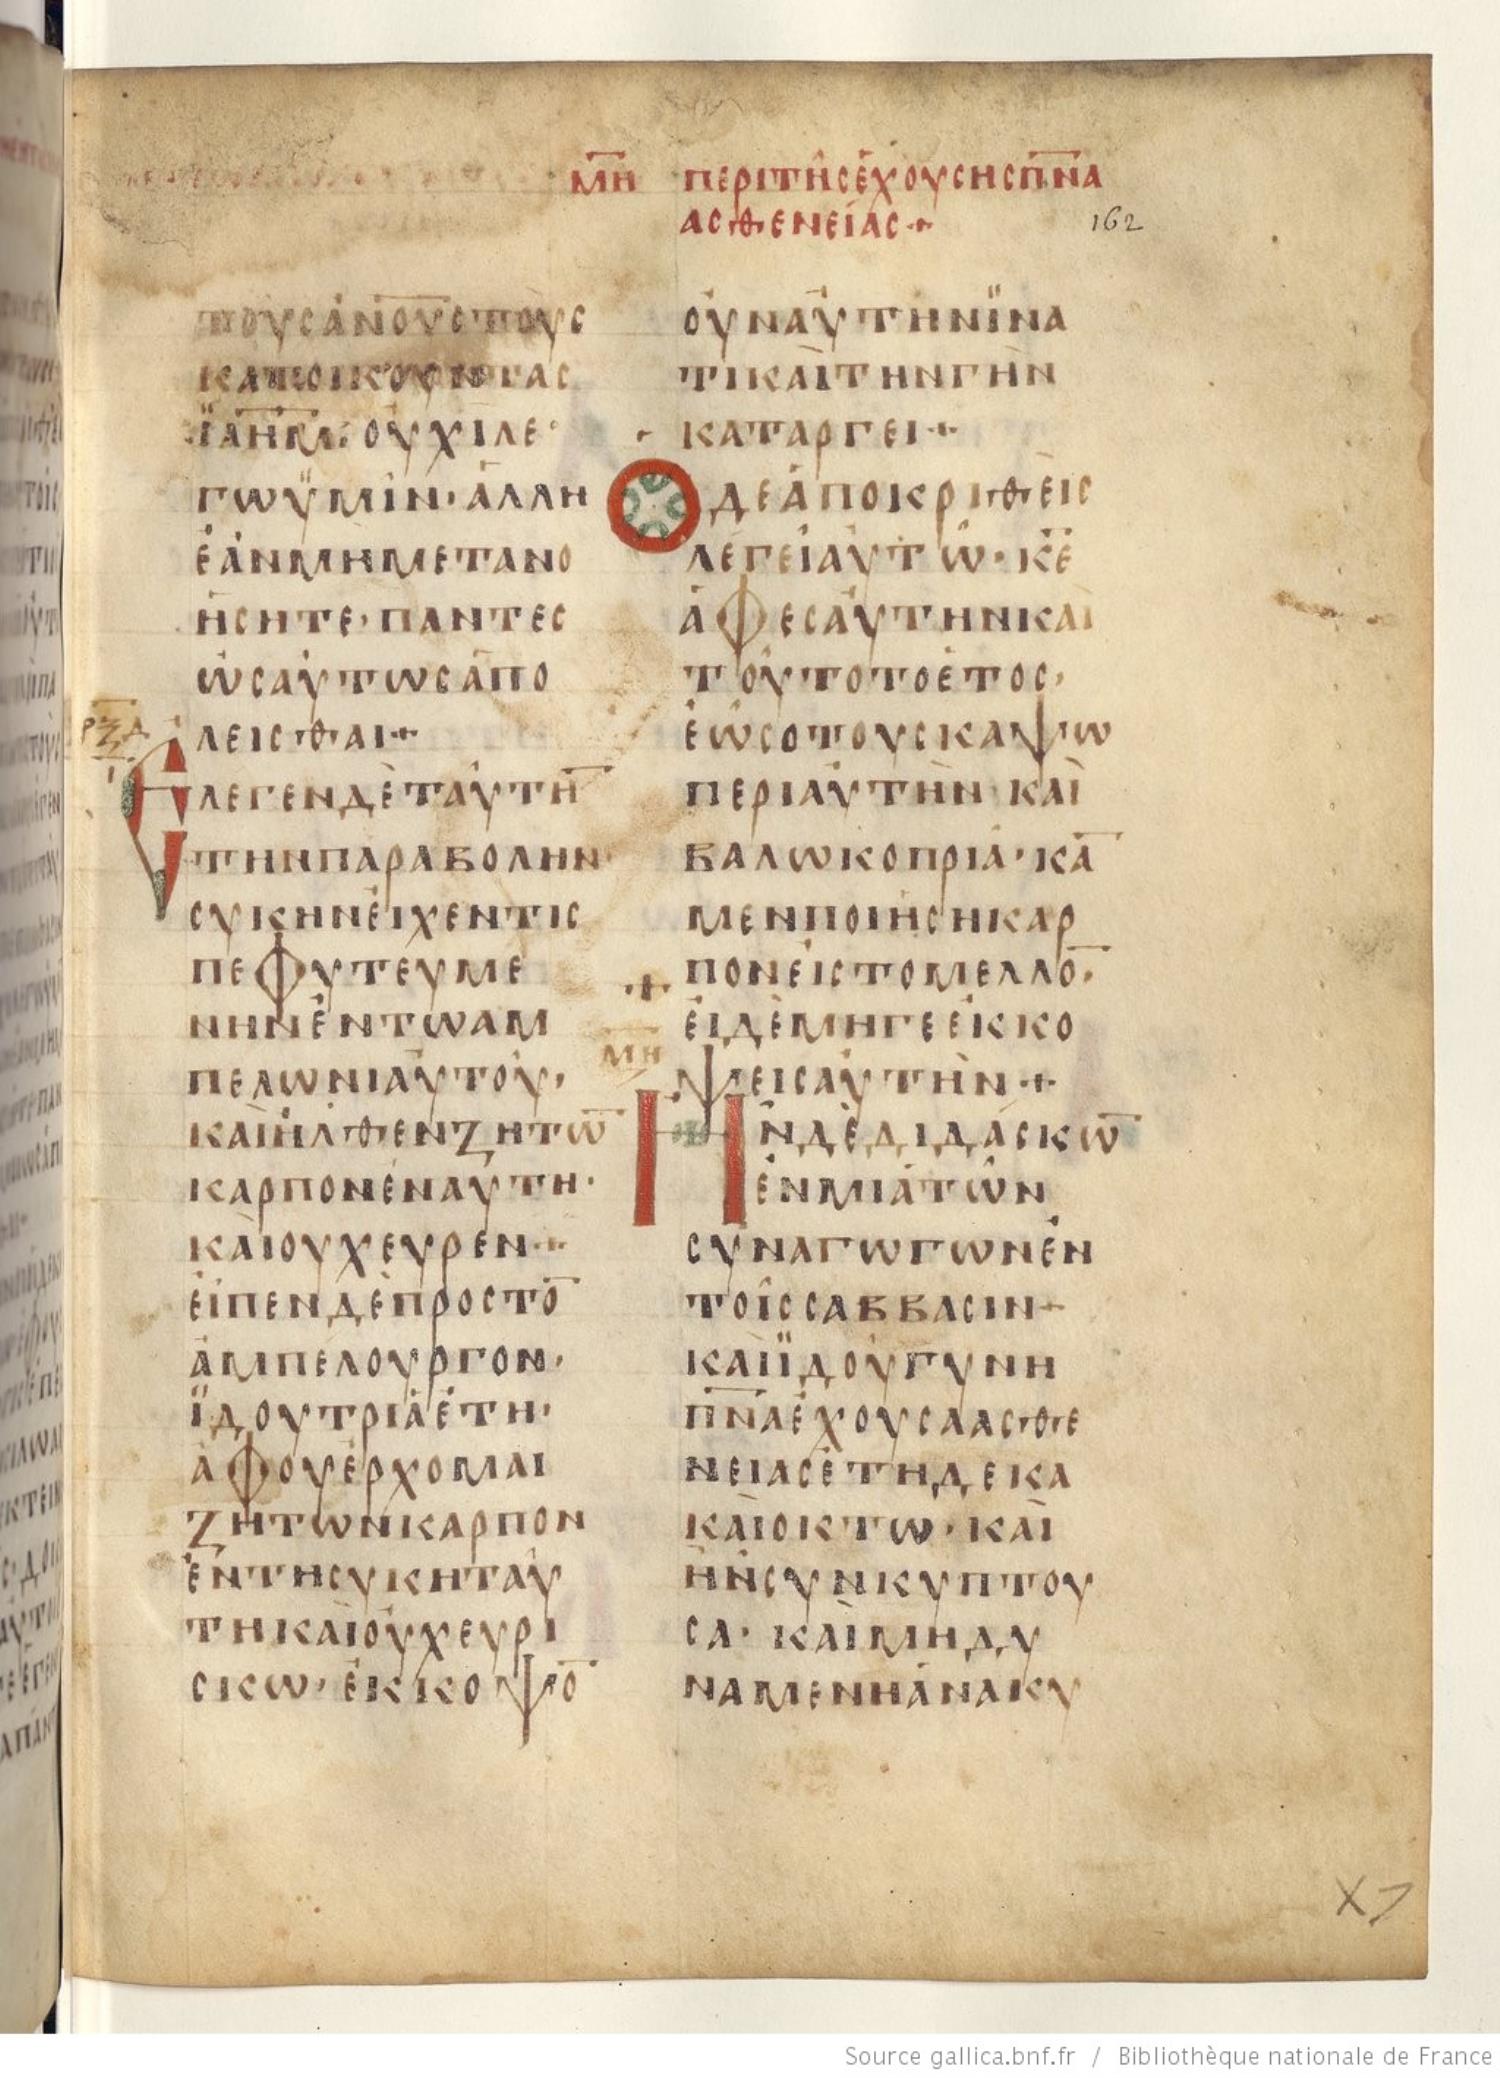 ΜΗ ΠΕΡΙΤΗСΕΧΟΥСΗСΠΝΑ
ΑСΘΕΝΕΙΑС+
162
ΤΟΥСΑΝΟΥСΤΟΥС
ΚΑΤΟΙΚΟΥΝΤΑС
ΪΑΗΜ· ΟΥΧΙΛΕ
ΓΩΫΜΙΝ· ΑΛΛΗ
ΕΑΝΜΗΜΕΤΑΝΟ
ΗСΗΤΕ· ΠΑΝΤΕС
ΩСΑΥΤΩСΑΠΟ
ΛΕΙСΘΑΙ+
ΡΞΔ
ΕΛΕΓΕΝΔΕΤΑΥΤΗ̅
ΤΗΝΠΑΡΑΒΟΛΗΝ·
СΥΚΗΝΕΙΧΕΝΤΙС
ΠΕΦΥΤΕΥΜΕ
ΝΗΝΕΝΤΩΑΜ
ΠΕΛΩΝΙΑΥΤΟΥ,
ΚΑΙΗΛΘΕΝΖΗΤΩ̅
ΚΑΡΠΟΝΕΝΑΥΤΗ·
ΚΑΙΟΥΧΕΥΡΕΝ+
ΕΙΠΕΝΔΕΠΡΟСΤΟ̅
ΑΜΠΕΛΟΥΡΓΟΝ,
ΪΔΟΥΤΡΙΑΕΤΗ·
ΑΦΟΥΕΡΧΟΜΑΙ
ΖΗΤΩΝΚΑΡΠΟΝ
ΕΝΤΗСΥΚΗΤΑΥ
ΤΗΚΑΙΟΥΧΕΥΡΙ
СΚΩ· ΕΚΚΟΨΟ̅
ΟΥΝΑΥΤΗΝΪΝΑ
ΤΙΚΑΙΤΗΝΓΗΝ
ΚΑΤΑΡΓΕΙ+
ΟΔΕΑΠΟΚΡΙΘΕΙС
ΛΕΓΕΙΑΥΤΩ· ΚΕ
ΑΦΕСΑΥΤΗΝΚΑΙ
ΤΟΥΤΟΤΟΕΤΟС,
ΕΩСΟΤΟΥСΚΑΨΩ
ΠΕΡΙΑΥΤΗΝ ΚΑΙ
ΒΑΛΩΚΟΠΡΙΑ· ΚΑ̅
ΜΕΝΠΟΙΗСΗΚΑΡ
ΠΟΝΕΙСΤΟΜΕΛΛΟ̅·
ΕΙΔΕΜΗΓΕΕΚΚΟ
ΨΕΙСΑΥΤΗΝ+
ΜΗ
ΗΝΔΕΔΙΔΑСΚΩ̅
ΕΝΜΙΑΤΩΝ
СΥΝΑΓΩΓΩΝΕΝ
ΤΟΙССΑΒΒΑСΙΝ+
ΚΑΙΪΔΟΥΓΥΝΗ
ΠΝΑΕΧΟΥСΑΑСΘΕ
ΝΕΙΑСΕΤΗΔΕΚΑ
ΚΑΙΟΚΤΩ· ΚΑΙ
ΗΝСΥΝΚΥΠΤΟΥ
СΑ· ΚΑΙΜΗΔΥ
ΝΑΜΕΝΗΑΝΑΚΥ
X7
Source gallica.bnf.fr / Bibliothèque nationale de France